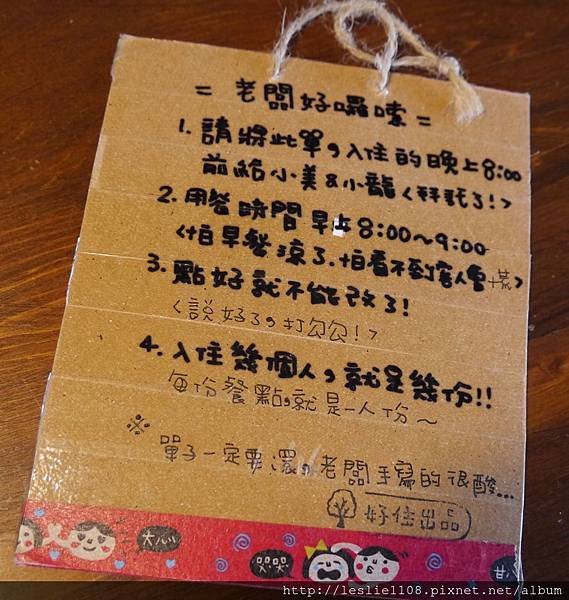 = 老闆好囉嗦 =
1. 請將此單，入住的晚上8:00
前給小美&小龍<拜託了!>
2. 用餐時間早上8:00~9:00
<怕早餐涼了.怕看不到客人會慌>
3. 點好就不能改了!
<說好了,打勾勾!>
4. 入住幾個人，就是幾份!!
每份餐點,就是一人份~
※
單子一定要還,老闆手寫的很酸...
好住出品
大心
哭哭
甘
http://leslie1108.pixnet.net/album